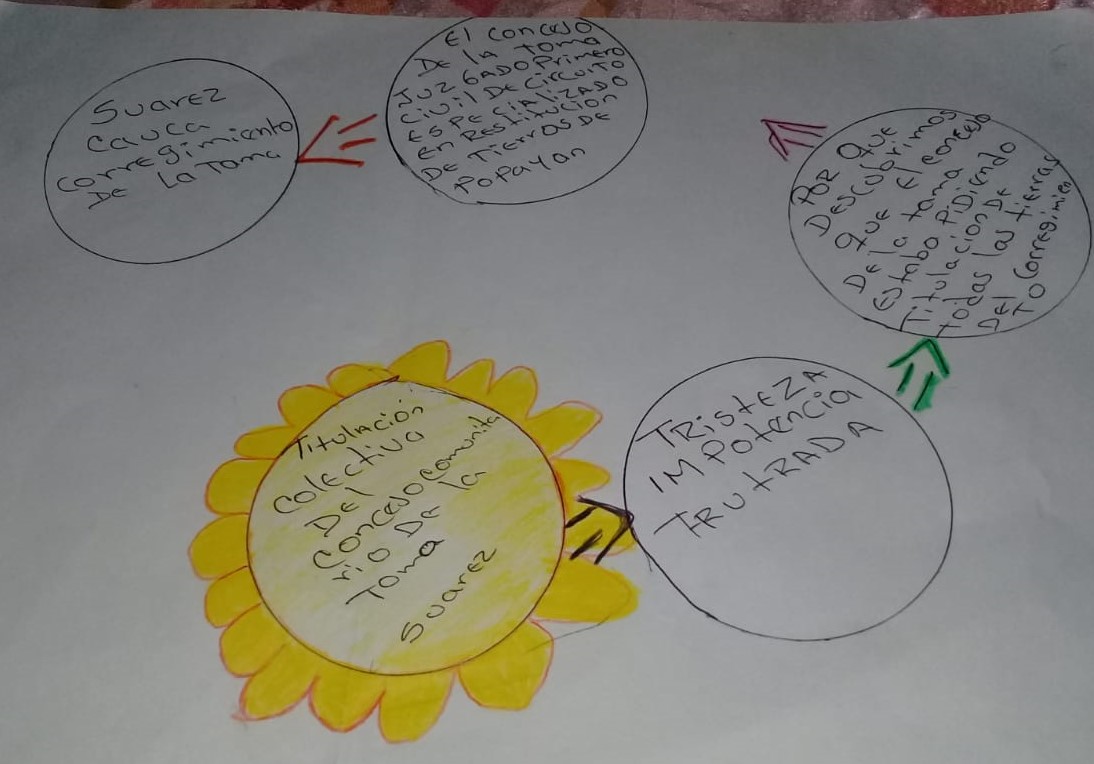 Suarez
Cauca
Corregimiento
De La Toma
El Concejo
De la toma
JUZGADO Primero
Civil De Circuito
ESPECIALIZADO
en Restitucion
De Tierras DE
Popayan
POR QUE
DESCUBRIMOS
QUE El Concejo
De la toma
Estabo PiDiendo
Titulacion DE
todas las tierras
DEl Corregimien
TO
TRisteZA
IMPotencia
TRUtRADA
Titulación
Colectivo
Del
Concejo Comunita
rio De la
Toma
Suarez